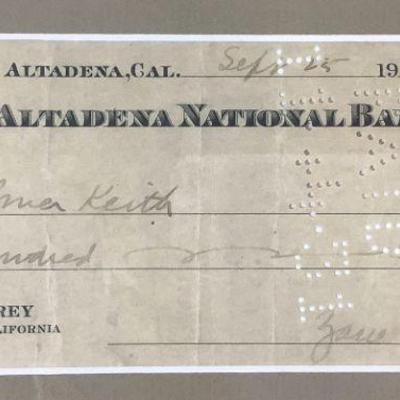 ALTADENA, CAL. Sept 25 19
ALTADENA NATIONAL BA
Keith
undred
REY
ALIFORNIA
Zane